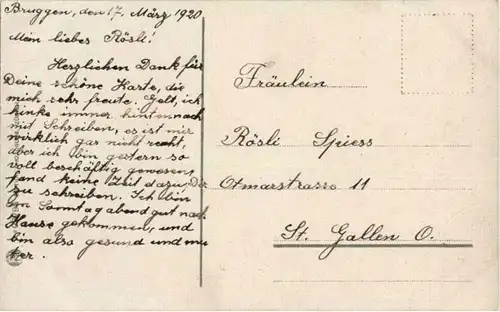 Bruggen, den 17. März 1920
Mein liebes Rösli!
Herzlichen Dank für
Deine schöne Karte, die
mich sehr freute. Gelt, ich
hinke immer hintennach
mit Schreiben, es ist mir
wirklich gar nicht recht,
aber ich bin gestern so
voll beschäftig gewesen,
fand keine Zeit dazu, Dir
zu schreiben. Ich bin
am Sonntag abend gut nach
Hause gekommen, und
bin also gesund und mun
ter.
Fräulein
Rösli Spiess
Otmarstrasse 11
St. Gallen O.